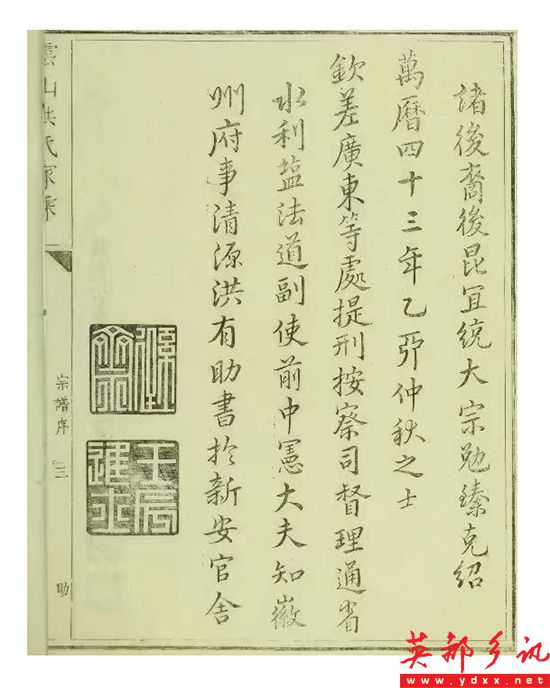 諸後裔後昆冝統大宗勉臻克紹
萬曆四十三年乙夘仲秋之士
欽差廣東等處提刑按察司督理通省
水利盐法道副使前中憲大夫知徽
州府事清源洪有助書於新安官舍
壬辰
進士
雲山洪氏家乘
宗譜序
三
助
英都乡讯
www.ydxx.net